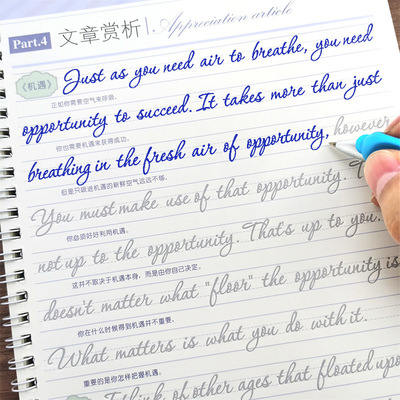 Part.4 文章赏析 Appreciation article
《机遇》 Just as you need air to breathe, you need
正如你需要空气来呼吸。
opportunity to succeed. It takes more than just
你也需要机遇来获得成功。
breathing in the fresh air of opportunity, however
但是只吸进机遇的新鲜空气还远不够。
You must make use of that opportunity. T
你必须好好利用机遇。
not up to the opportunity. That's up to you.
这并不取决于机遇本身，而是由你自己决定。
doesn't matter what "floor" the opportunity is
你在什么时候得到机遇并不重要。
What matters is what you do with it.
重要的是你怎样把握机遇。
think of other ages that floated upo